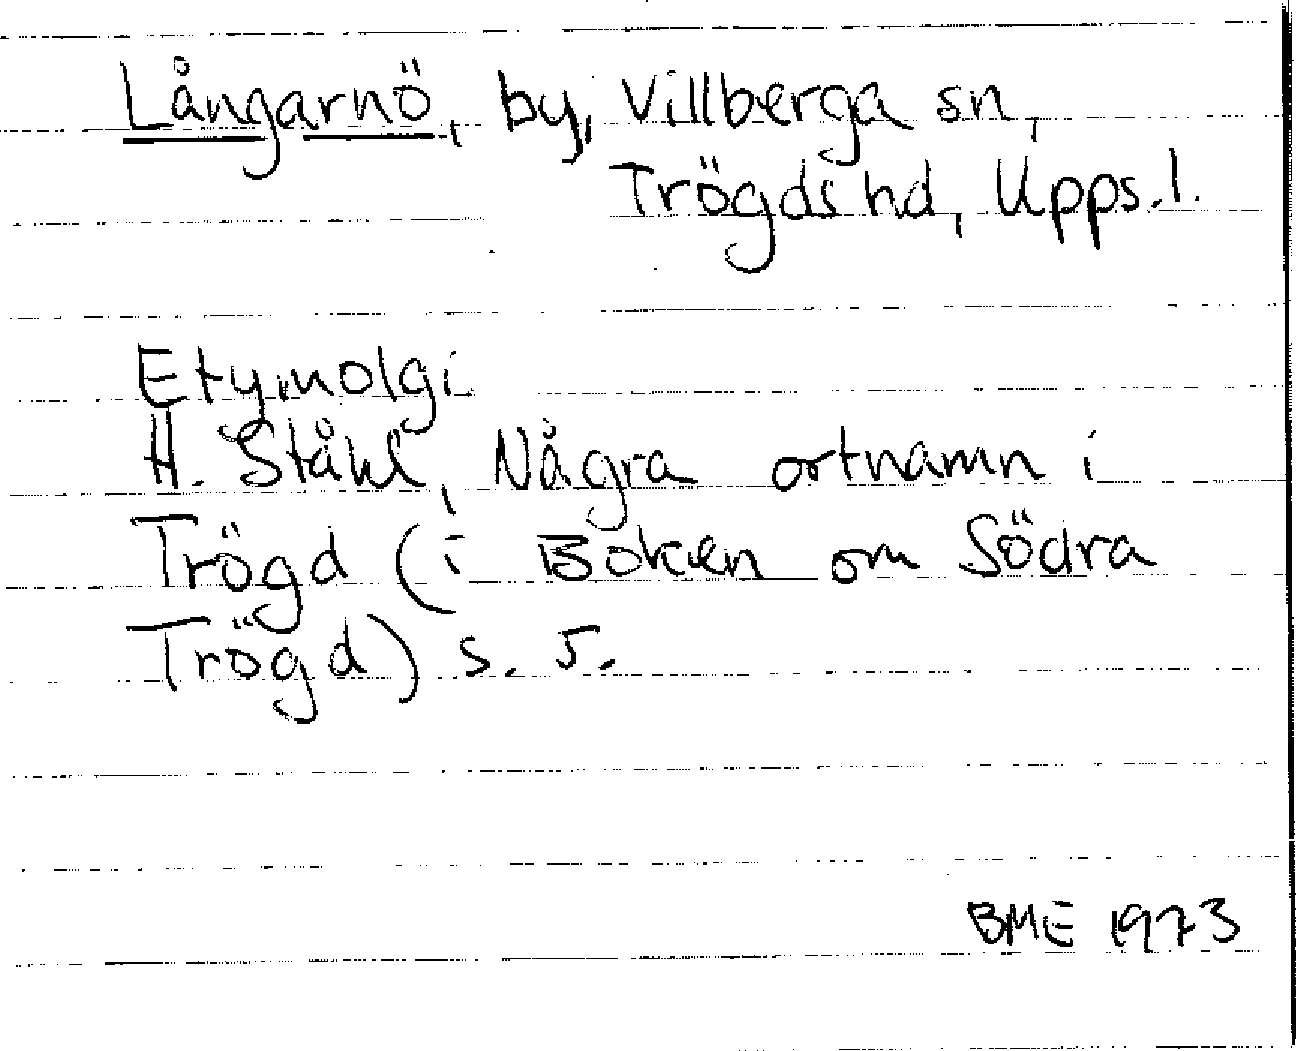 Långarnö, by, Villberga sn,
Trögds hd, Upps. l.
Etymolgi
H. Ståhl, Några ortnamn i
Trögd (i Boken om Södra
Trögd) s. 5.
BME 1973